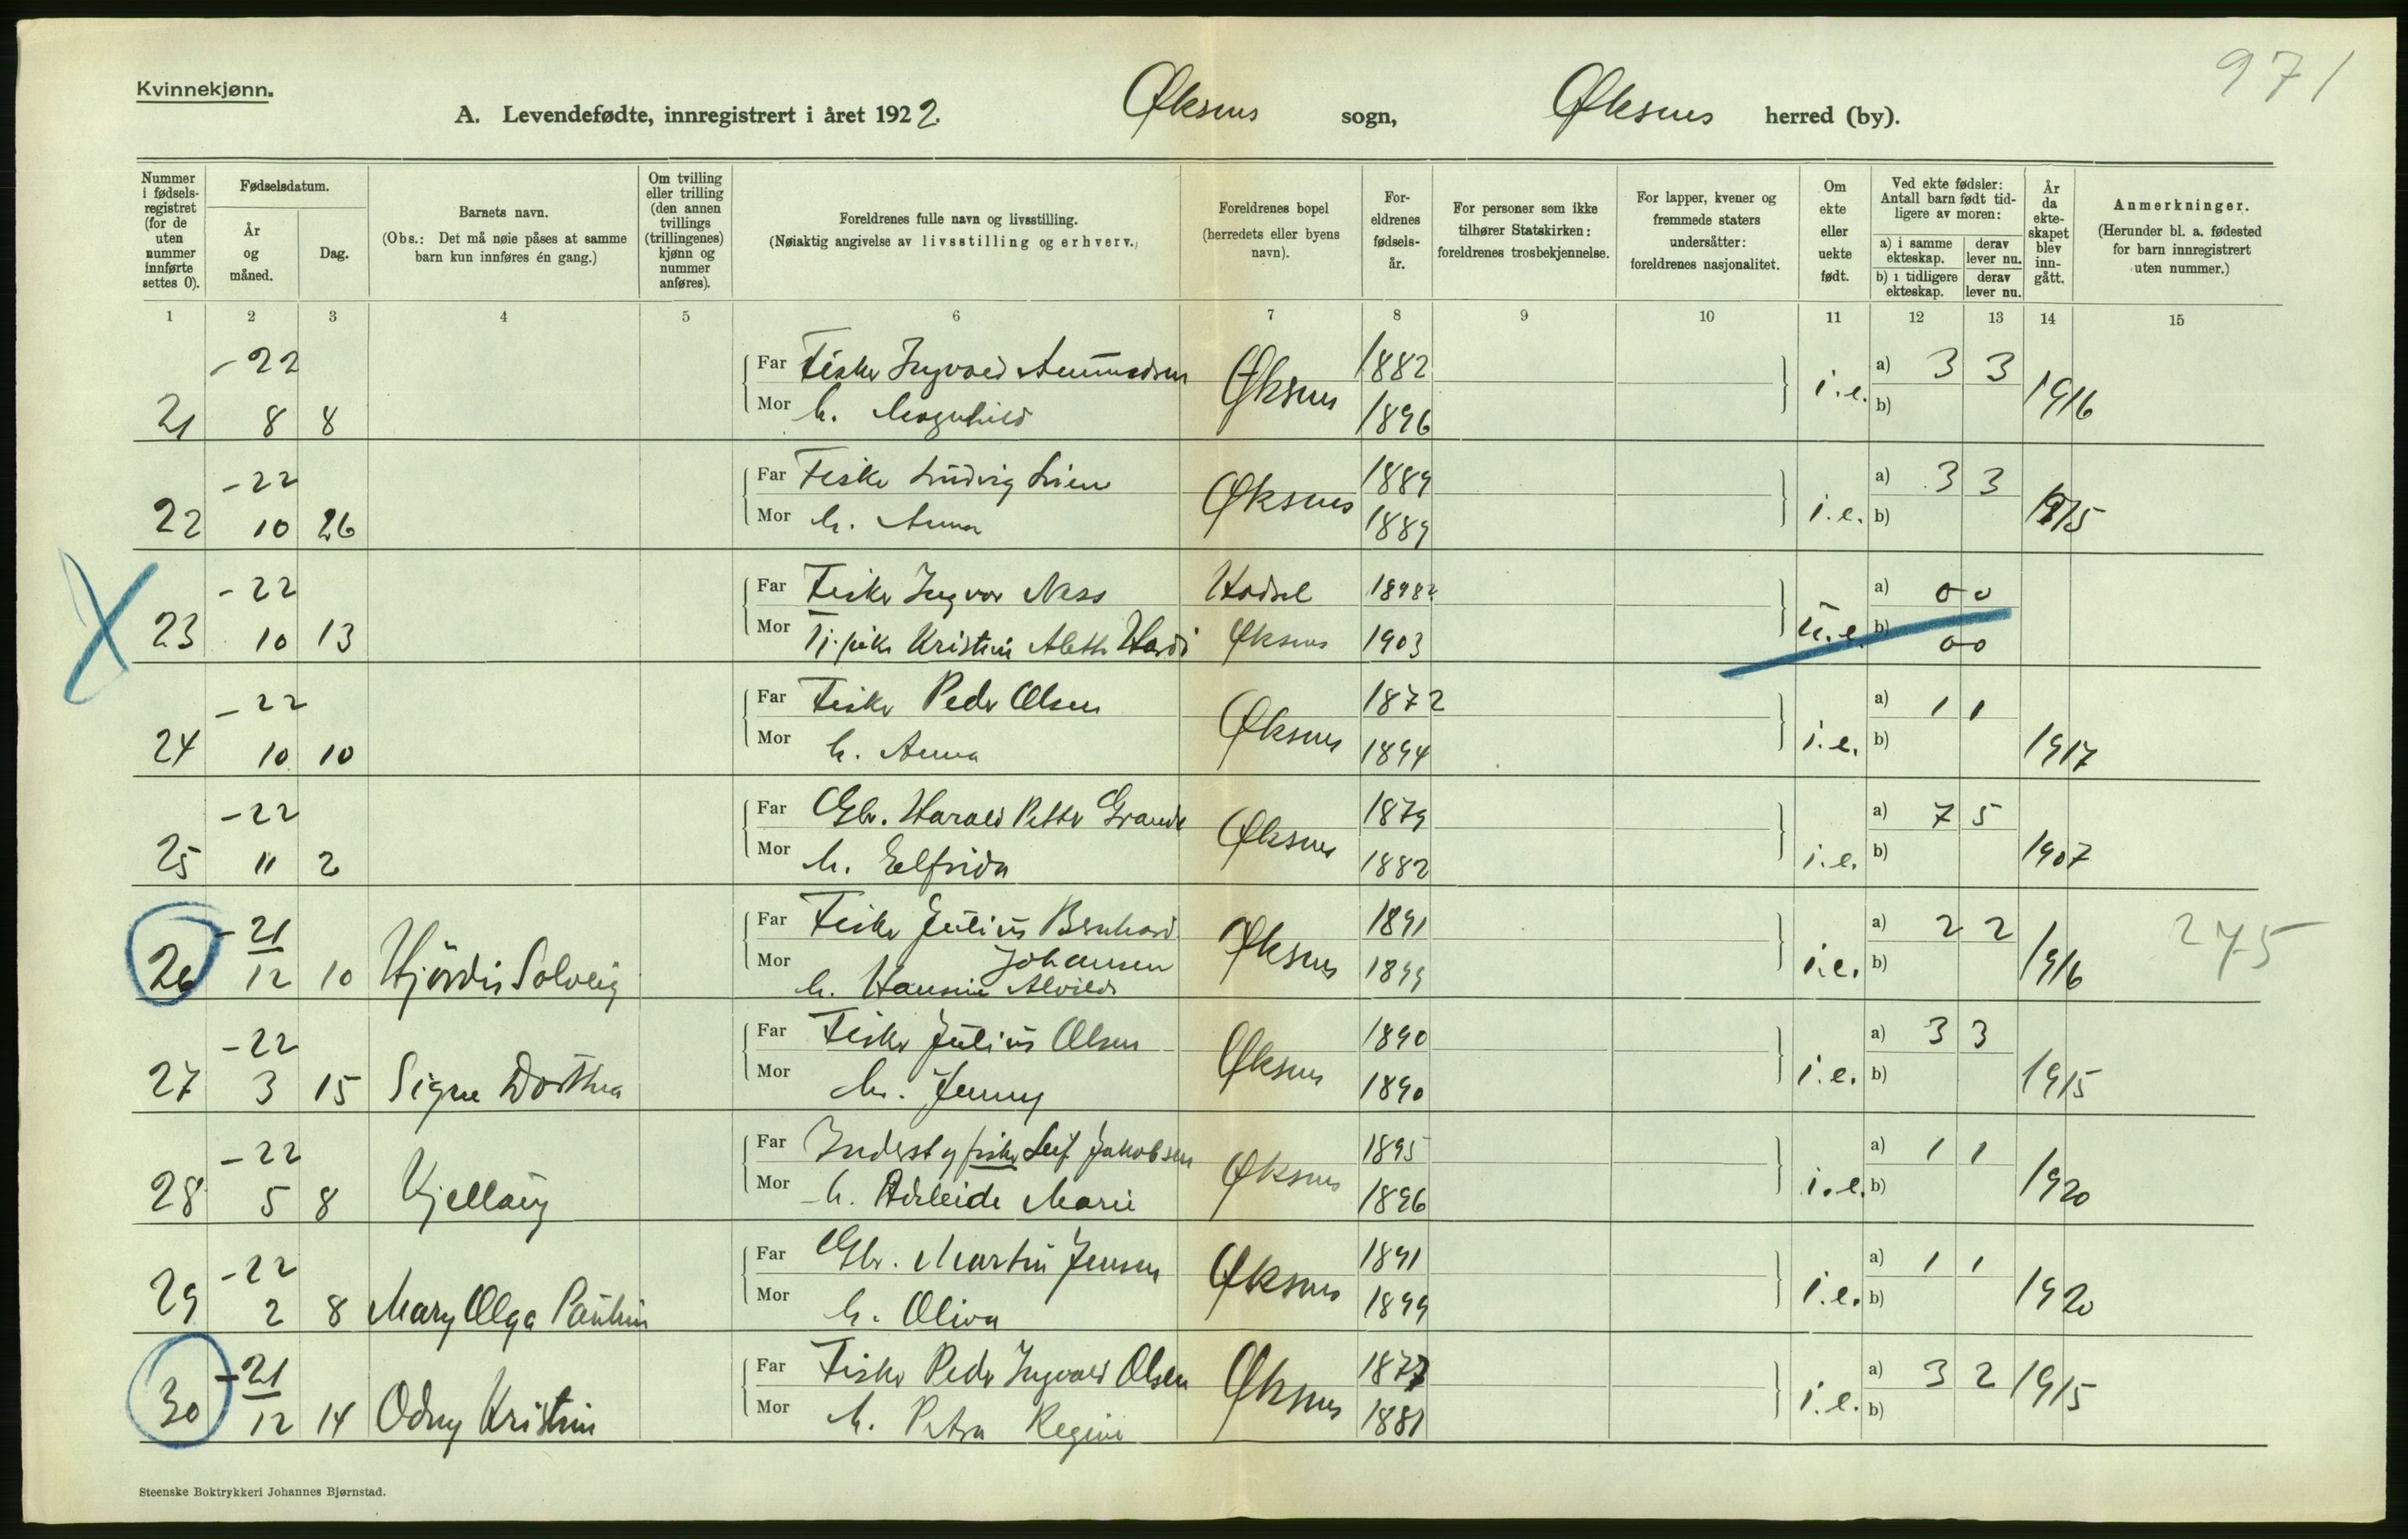 971
Kvinnekjønn.
A. Levendefødte, innregistrert i året 1922. Øksnes sogn, Øksnes herred (by).
Nummer i fødsels-registret (for de uten nummer innførte settes 0).
Fødselsdatum.
År og måned.
Dag.
Barnets navn.
(Obs.: Det må nøie påses at samme barn kun innføres én gang.)
Om tvilling eller trilling (den annen tvillings (trillingenes) kjønn og nummer anføres).
Foreldrenes fulle navn og livsstilling.
(Nøiaktig angivelse av livsstilling og erhverv.)
Foreldrenes bopel (herredets eller byens navn).
For-eldrenes fødsels-år.
For personer som ikke tilhører Statskirken: foreldrenes trosbekjennelse.
For lapper, kvener og fremmede staters undersåtter: foreldrenes nasjonalitet.
Om ekte eller uekte født.
Ved ekte fødsler: Antall barn født tid-ligere av moren:
a) i samme ekteskap. derav lever nu.
b) i tidligere ekteskap. derav lever nu.
År da ekte-skapet blev inn-gått.
Anmerkninger.
(Herunder bl. a. fødested for barn innregistrert uten nummer.)
1 2 3 4 5 6 7 8 9 10 11 12 13 14 15
-22 Far Fisker Ingvald Amundsen Øksnes 1882 a) 3 3
21 8 8 Mor h. Magnhild 1896 i.e. b) 1916
-22 Far Fisker Ludvig Lien Øksnes 1889 a) 3 3
22 10 26 Mor h. Anna 1889 i.e. b) 1915
-22 Far Fisker Ingvar Ness Hadsel 1898? a) 0 0
23 10 13 Mor Tj.pike Kristine Aleth Øksnes 1903 u.e. b) 0 0
-22 Far Fisker Peder Olsen Øksnes 1872 a) 1 1
24 10 10 Mor h. Anna 1894 i.e. b) 1917
-22 Far Gbr. Harald Petter Grande Øksnes 1879 a) 7 5
25 11 2 Mor h. Elfrida 1882 i.e. b) 1907
-21 Far Fisker Julius Bernhard Johansen Øksnes 1891 a) 2 2 275
26 12 10 Hjördis Solveig Mor h. Hansine Alvilde 1899 i.e. b) 1916
-22 Far Fisker Julius Olsen Øksnes 1890 a) 3 3
27 3 15 Signe Dorthea Mor h. Jenny 1890 i.e. b) 1915
-22 Far Inderst og fisker Leif Jakobsen Øksnes 1895 a) 1 1
28 5 8 Kjellaug Mor h. Adeleide Marie 1896 i.e. b) 1920
-22 Far Gbr. Martin Jensen Øksnes 1891 a) 1 1
29 2 8 Mary Olga Pauline Mor h. Oliva 1899 i.e. b) 1920
-21 Far Fisker Peder Ingvald Olsen Øksnes 1877 a) 3 2 1915
30 12 14 Odny Kristine Mor h. Petra Regine 1881 i.e. b)
Steenske Boktrykkeri Johannes Bjørnstad.